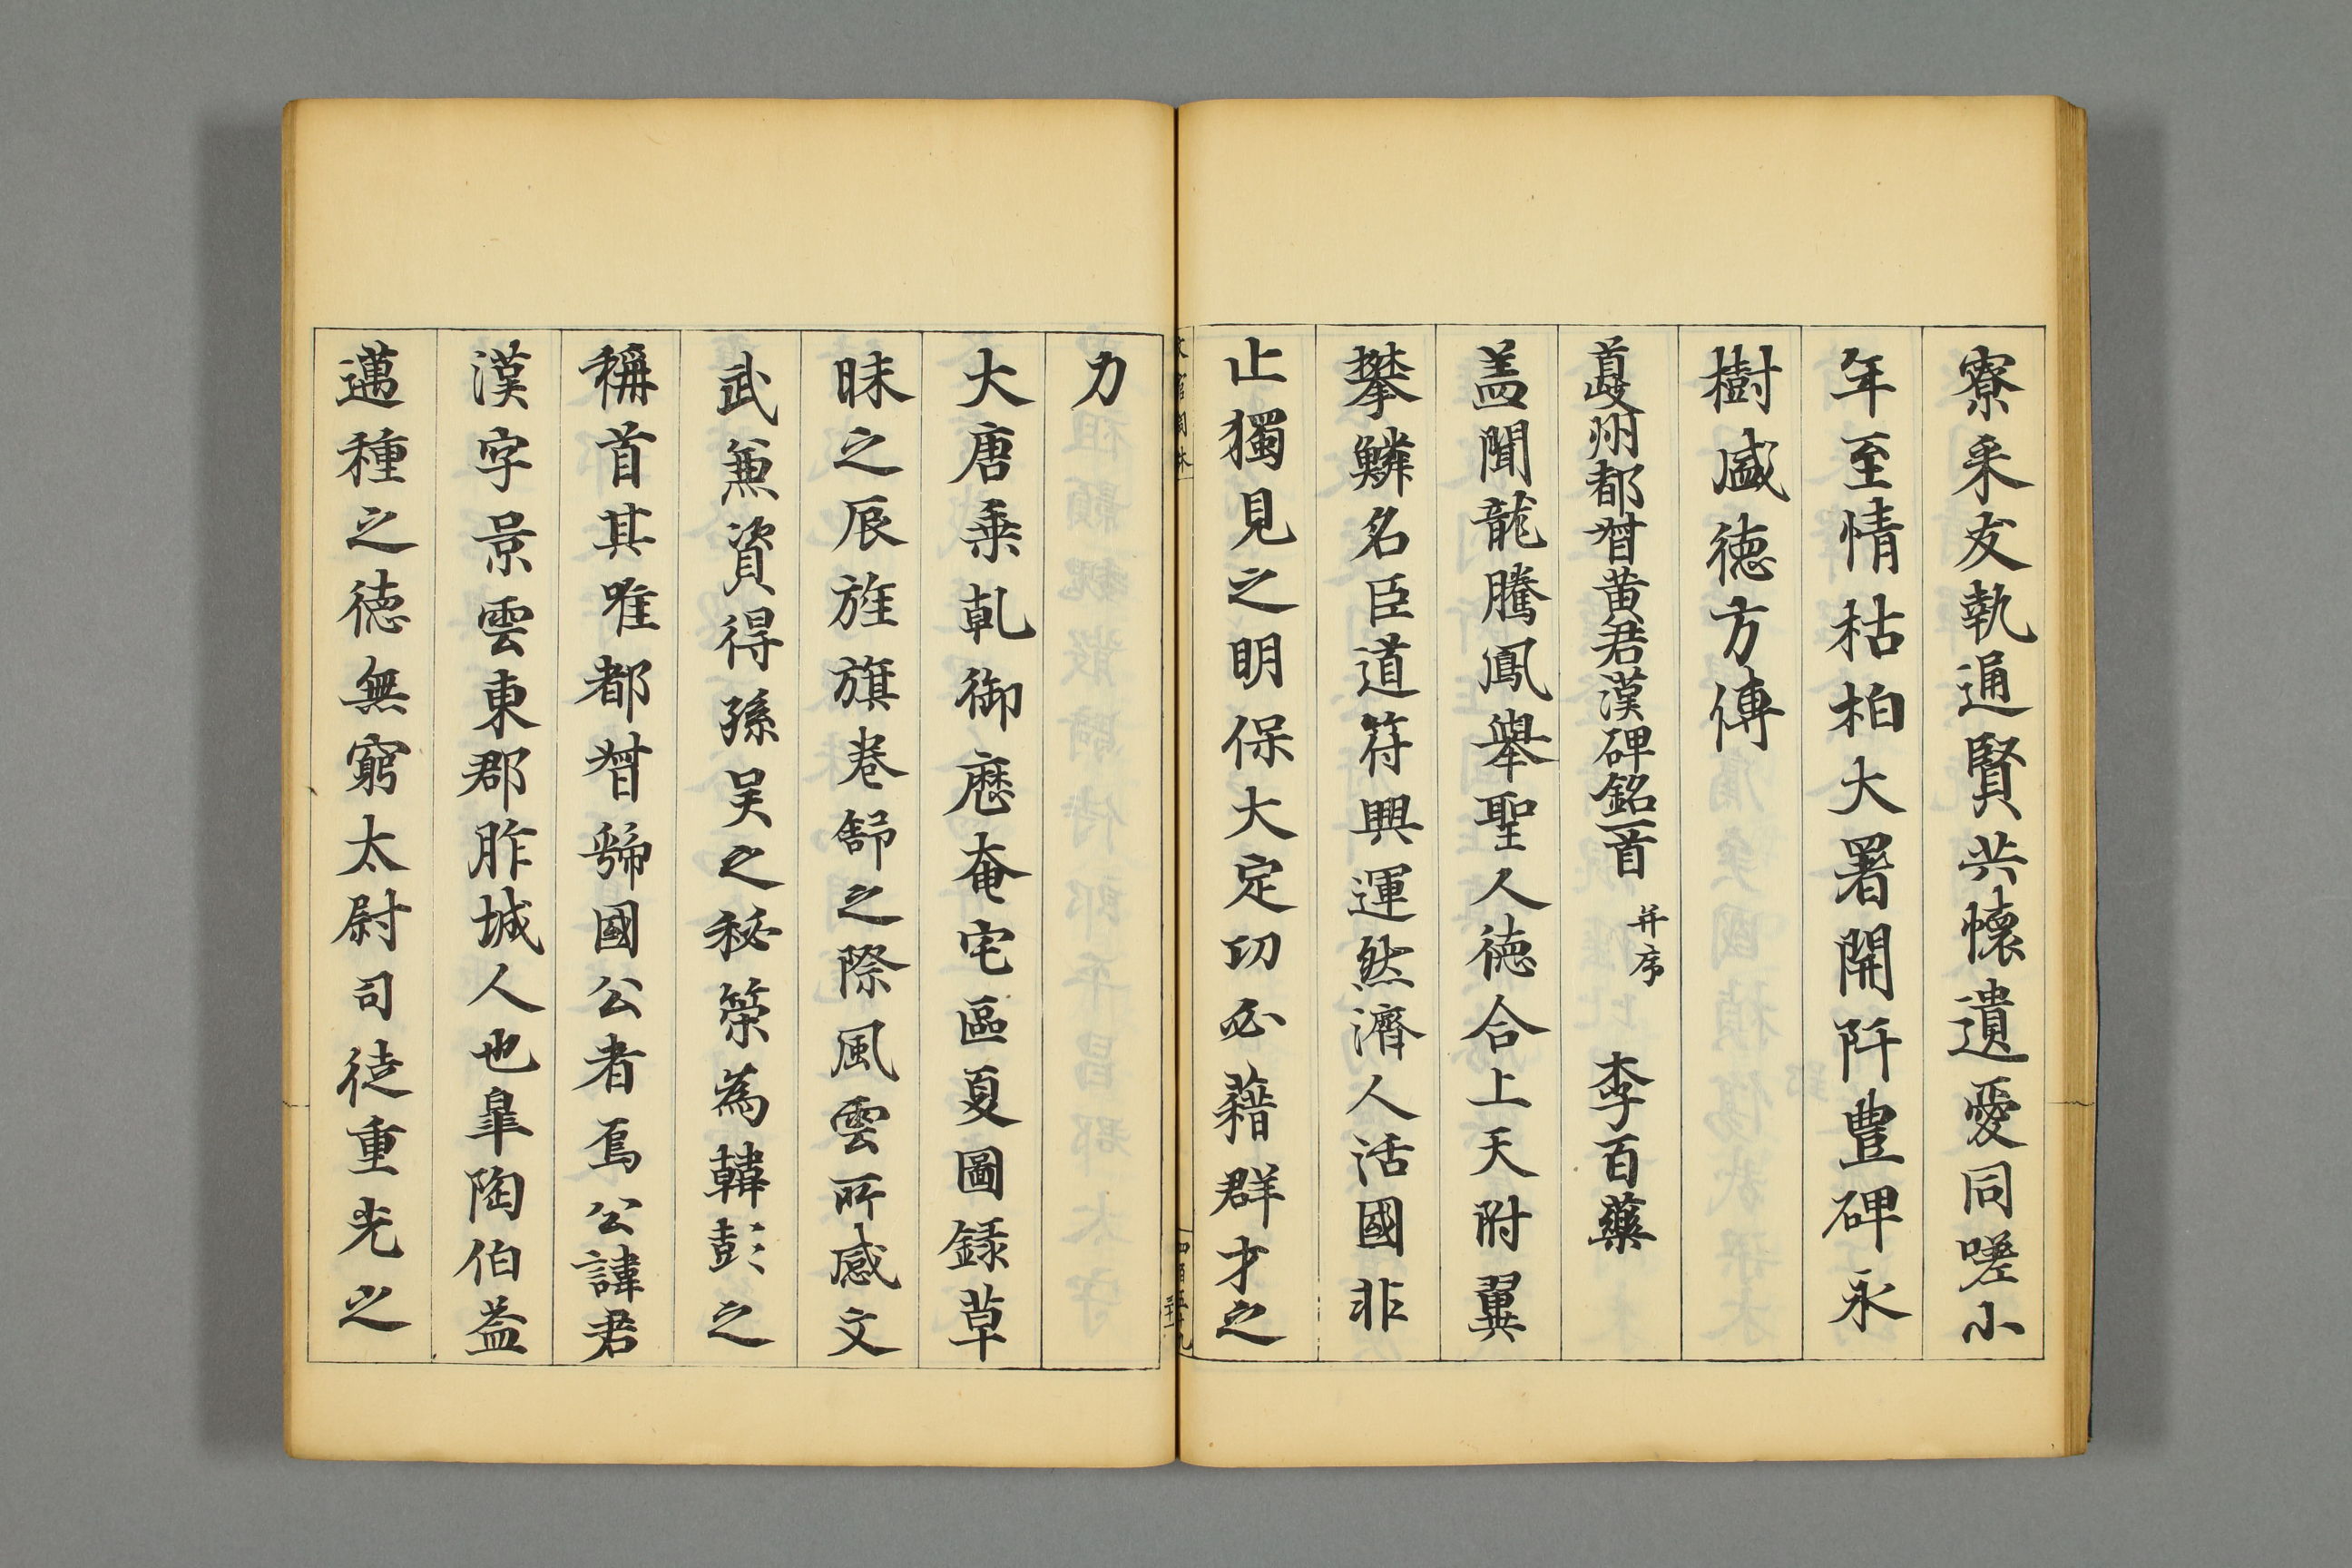 寮釆友執通賢共懷遺愛同嗟小
年至情枯柏大署開阡豊碑永
樹盛德方傳
首夔州都督黄君漢碑銘一首 并序 李百藥
盖聞龍騰鳳舉聖人德合上天附翼
攀鱗名臣道符興運然濟人活國非
止獨見之明保大定功必藉群才之
力
大唐乗乹御歴奄宅區夏圖録草
昧之辰旌旗巻舒之際風雲所感文
武兼資得孫吴之秘策為韓彭之
稱首其唯都督虢國公者焉公諱君
漢字景雲東郡胙城人也皐陶伯益
邁種之德無窮太尉司徒重光之